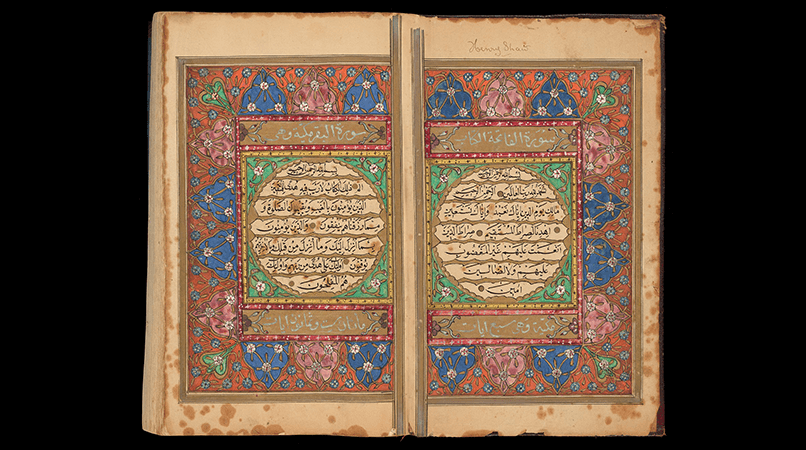 Henry Shaw
سورة الفاتحة
بسم الله الرحمن الرحيم
الحمد لله رب العالمين الرحمن الرحيم
مالك يوم الدين اياك نعبد واياك نستعين
اهدنا الصراط المستقيم صراط الذين
انعمت عليهم غير المغضوب
عليهم ولا الضالين
امين
مكية وهي سبع ايات
سورة البقرة وهي
بسم الله الرحمن الرحيم
الم ذلك الكتاب لا ريب فيه هدى للمتقين
الذين يؤمنون بالغيب ويقيمون الصلوة و
مما رزقناهم ينفقون والذين يؤمنون
بما انزل اليك وما انزل من قبلك وبالاخرة
يوقنون اولئك على هدى من ربهم واولئك
هم المفلحون